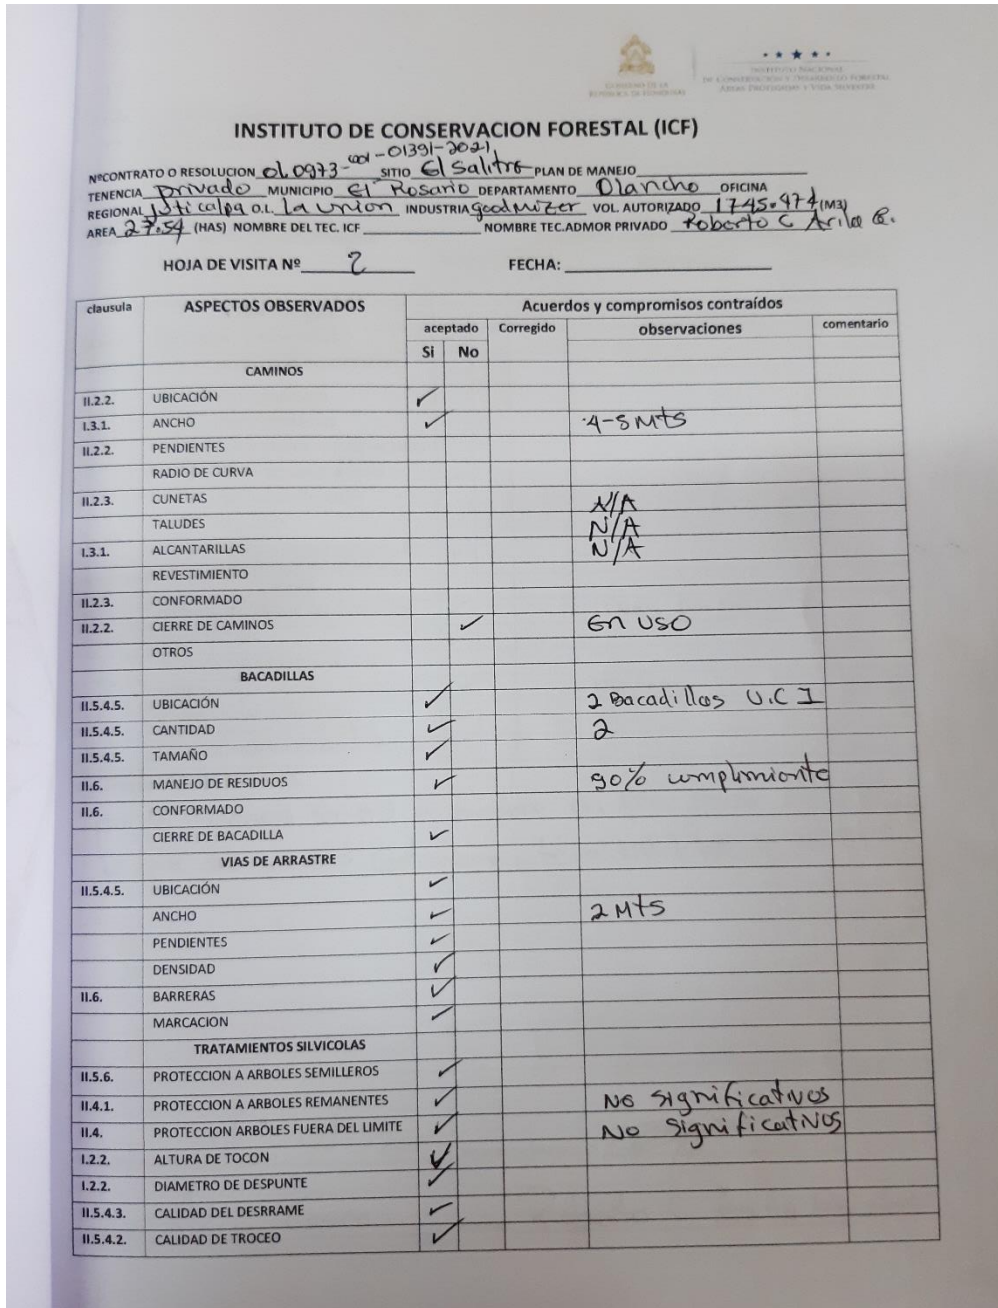 GOBIERNO DE LA
REPÚBLICA DE HONDURAS
★ ★ ★ ★ ★
INSTITUTO NACIONAL
DE CONSERVACIÓN Y DESARROLLO FORESTAL
ÁREAS PROTEGIDAS Y VIDA SILVESTRE
INSTITUTO DE CONSERVACION FORESTAL (ICF)
NºCONTRATO O RESOLUCION OL 0973- -01391-2021 SITIO El Salitre PLAN DE MANEJO
TENENCIA Privado MUNICIPIO El Rosario DEPARTAMENTO Olancho OFICINA
REGIONAL Juticalpa O.L. La Union INDUSTRIA goodmizer VOL. AUTORIZADO 1745.474 (M3)
AREA 27.54 (HAS) NOMBRE DEL TEC. ICF NOMBRE TEC.ADMOR PRIVADO Roberto C
HOJA DE VISITA Nº 2 FECHA:
clausula ASPECTOS OBSERVADOS Acuerdos y compromisos contraídos
aceptado Corregido observaciones comentario
Si No
CAMINOS
II.2.2. UBICACIÓN ✓
I.3.1. ANCHO ✓ 4-5 Mts
II.2.2. PENDIENTES
RADIO DE CURVA
II.2.3. CUNETAS N/A
TALUDES N/A
I.3.1. ALCANTARILLAS N/A
REVESTIMIENTO
II.2.3. CONFORMADO
II.2.2. CIERRE DE CAMINOS ✓ En USO
OTROS
BACADILLAS
II.5.4.5. UBICACIÓN ✓ 2 Bacadillas U.C I
II.5.4.5. CANTIDAD ✓ 2
II.5.4.5. TAMAÑO ✓
II.6. MANEJO DE RESIDUOS ✓ 90% cumplimiento
II.6. CONFORMADO
CIERRE DE BACADILLA ✓
VIAS DE ARRASTRE
II.5.4.5. UBICACIÓN ✓
ANCHO ✓ 2 Mts
PENDIENTES ✓
DENSIDAD ✓
II.6. BARRERAS ✓
MARCACION ✓
TRATAMIENTOS SILVICOLAS
II.5.6. PROTECCION A ARBOLES SEMILLEROS ✓
II.4.1. PROTECCION A ARBOLES REMANENTES ✓ No significativos
II.4. PROTECCION ARBOLES FUERA DEL LIMITE ✓ No significativos
I.2.2. ALTURA DE TOCON ✓
I.2.2. DIAMETRO DE DESPUNTE ✓
II.5.4.3. CALIDAD DEL DESRRAME ✓
II.5.4.2. CALIDAD DE TROCEO ✓